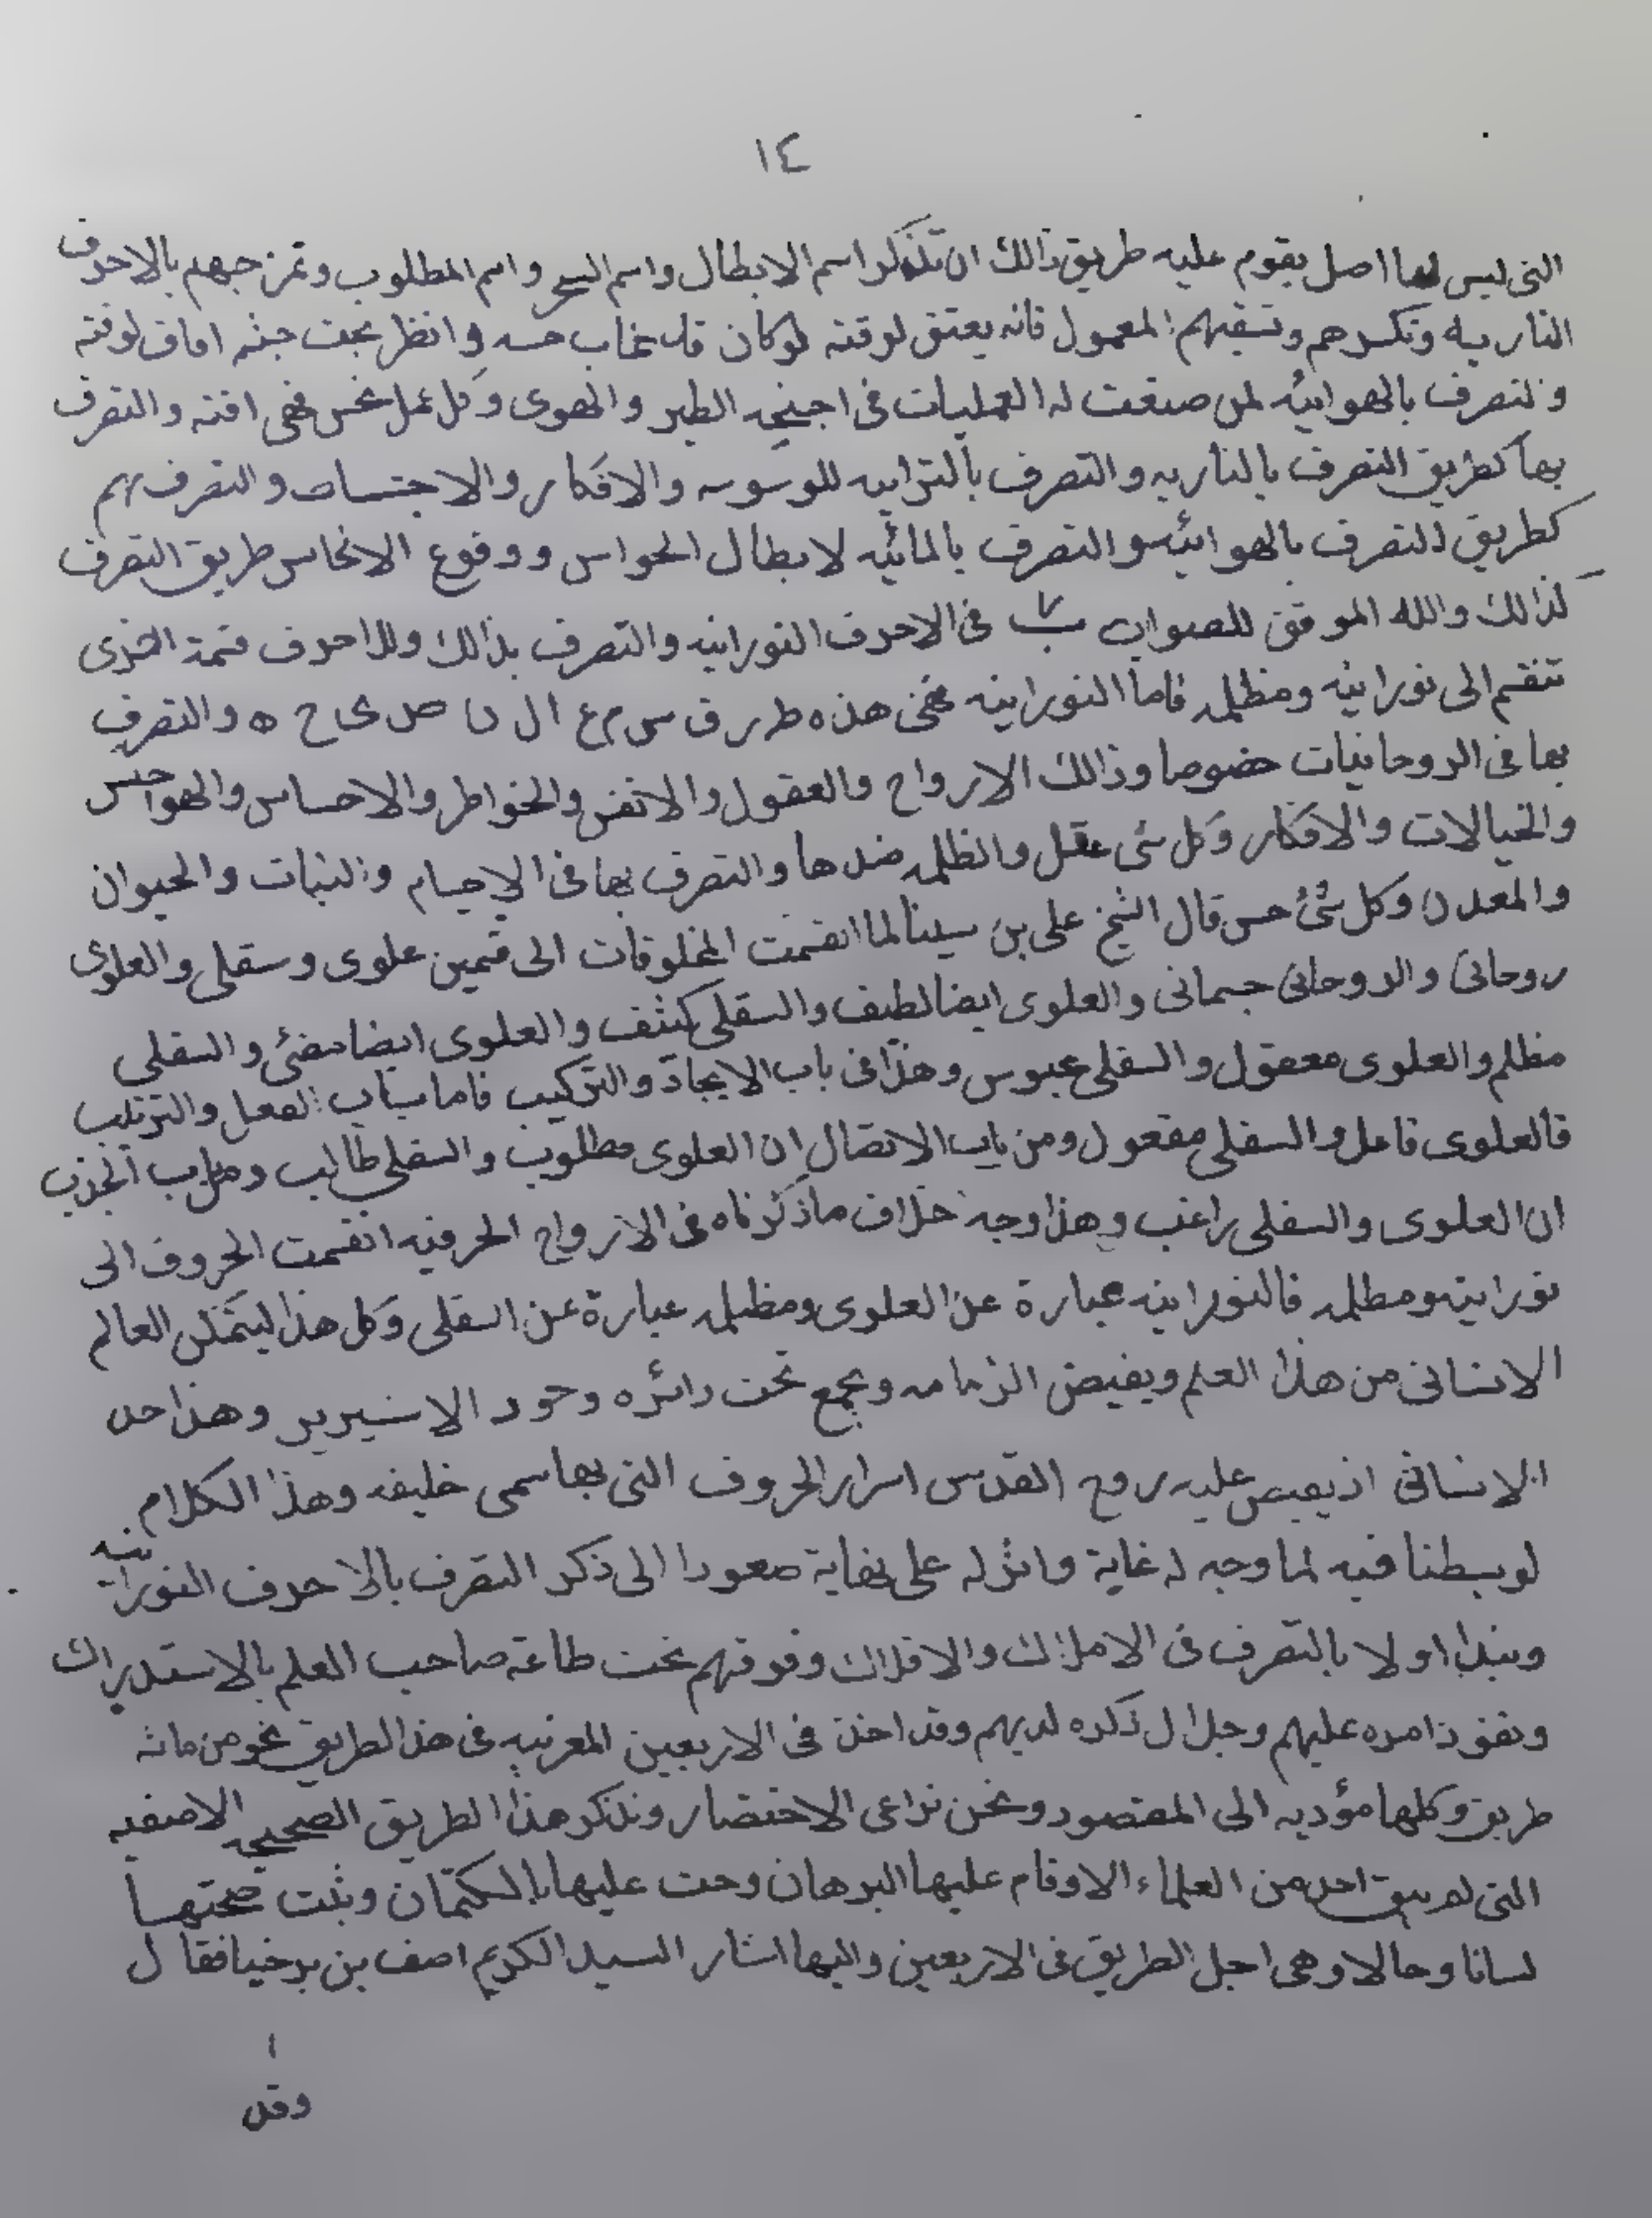 ١٤
التى ليس لها اصل يقوم عليه طريق ذالك ان تذكر اسم الابطال واسم السحر واسم المطلوب وتمزجهم بالاحرف
الناريه وتكسرهم وتسقيهم المعمول فانه يعتق لوقته لوكان قد غاب حسه وانظر تجت جنه افاق لوقته
وتتصرف بالهوائيه لمن صنعت له العمليات فى اجنحه الطير والهوى وكل عمل نحس فهى افته والتصرف
بها كطريق التصرف بالناريه والتصرف بالترابيه للوسوسه والافكار والاجتساات والتصرف بهم
كطريق التصرف بالهوائيه والتصرف بالمائيه لابطال الحواس ووقوع الانحاس طريق التصرف
كذالك والله الموفق للصواب فى الاحرف النورانيه والتصرف بذالك وللاحرف قسمة اخرى
تنقسم الى نورانيه ومظلمه فاما النورانيه فهى هذه ط ر ق س م ع ا ل ن ص ى ح ه والتصرف
بها فى الروحانيات خصوصا وذالك الارواح والعقول والانفس والخواطر والاحساس والهواجس
والخيالات والافكار وكل شى عقل والظلمه ضدها والتصرف بها فى الاجسام والنبات والحيوان
والمعدن وكل شئ حس قال الشيخ على بن سينا لما انقسمت المخلوقات الى قسمين علوى وسفلى والعلوى
روحانى والروحانى جسمانى والعلوى ايضا لطيف والسفلى كثيف والعلوى ايضا مضئ والسفلى
مظلم والعلوى معقول والسفلى محبوس وهذا فى باب الايجاد والتركيب فاما باب الفعل والترتيب
فالعلوى فاعل والسفلى مفعول ومن باب الاتصال ان العلوى مطلوب والسفلى طالب الجذب
ان العلوى والسفلى راغب وهذا وجه خلاف ما ذكرناه فى الازواج الحرفيه انقسمت الحروف الى
نورانيه ومظلمه فالنورانيه عبارة عن العلوى ومظلمه عبارة عن السفلى وكل هذا ليتمكن العالم
الانسانى من هذا العلم ويفيض الزمامه ويجمع تحت دائره وهذا حد
الانسانى اذ يفيض عليه روح القدس اسرار الحروف التى بها سمى خليفه وهذا الكلام
لو بسطنا فيه لما وجد له غاية على نهاية صعودا الى ذكر التصرف بالاحرف النورانيه
ونبدا اولا بالتصرف فى الاملاك والافلاك وقوتهم تحت طاعة صاحب العلم بالاستدراك
ونفوذ امره عليهم وجلال ذكره لديهم وقد اخذ فى الاربعين المغربيه فى هذا الطريق نحو من مائه
طريق وكلها مؤديه الى المقصود ونحن نراعى الاختصار ونذكر هذا الطريق الصحيحه الاصفيه
التى لم يبق احد من العلماء الا وقام عليها البرهان وحث عليها بالكتمان وثبت صحتها
لسانا وحالا وهى اجل الطريق فى الاربعين واليها اشار السيد الكريم اصف بن برخيا فقال
وقد